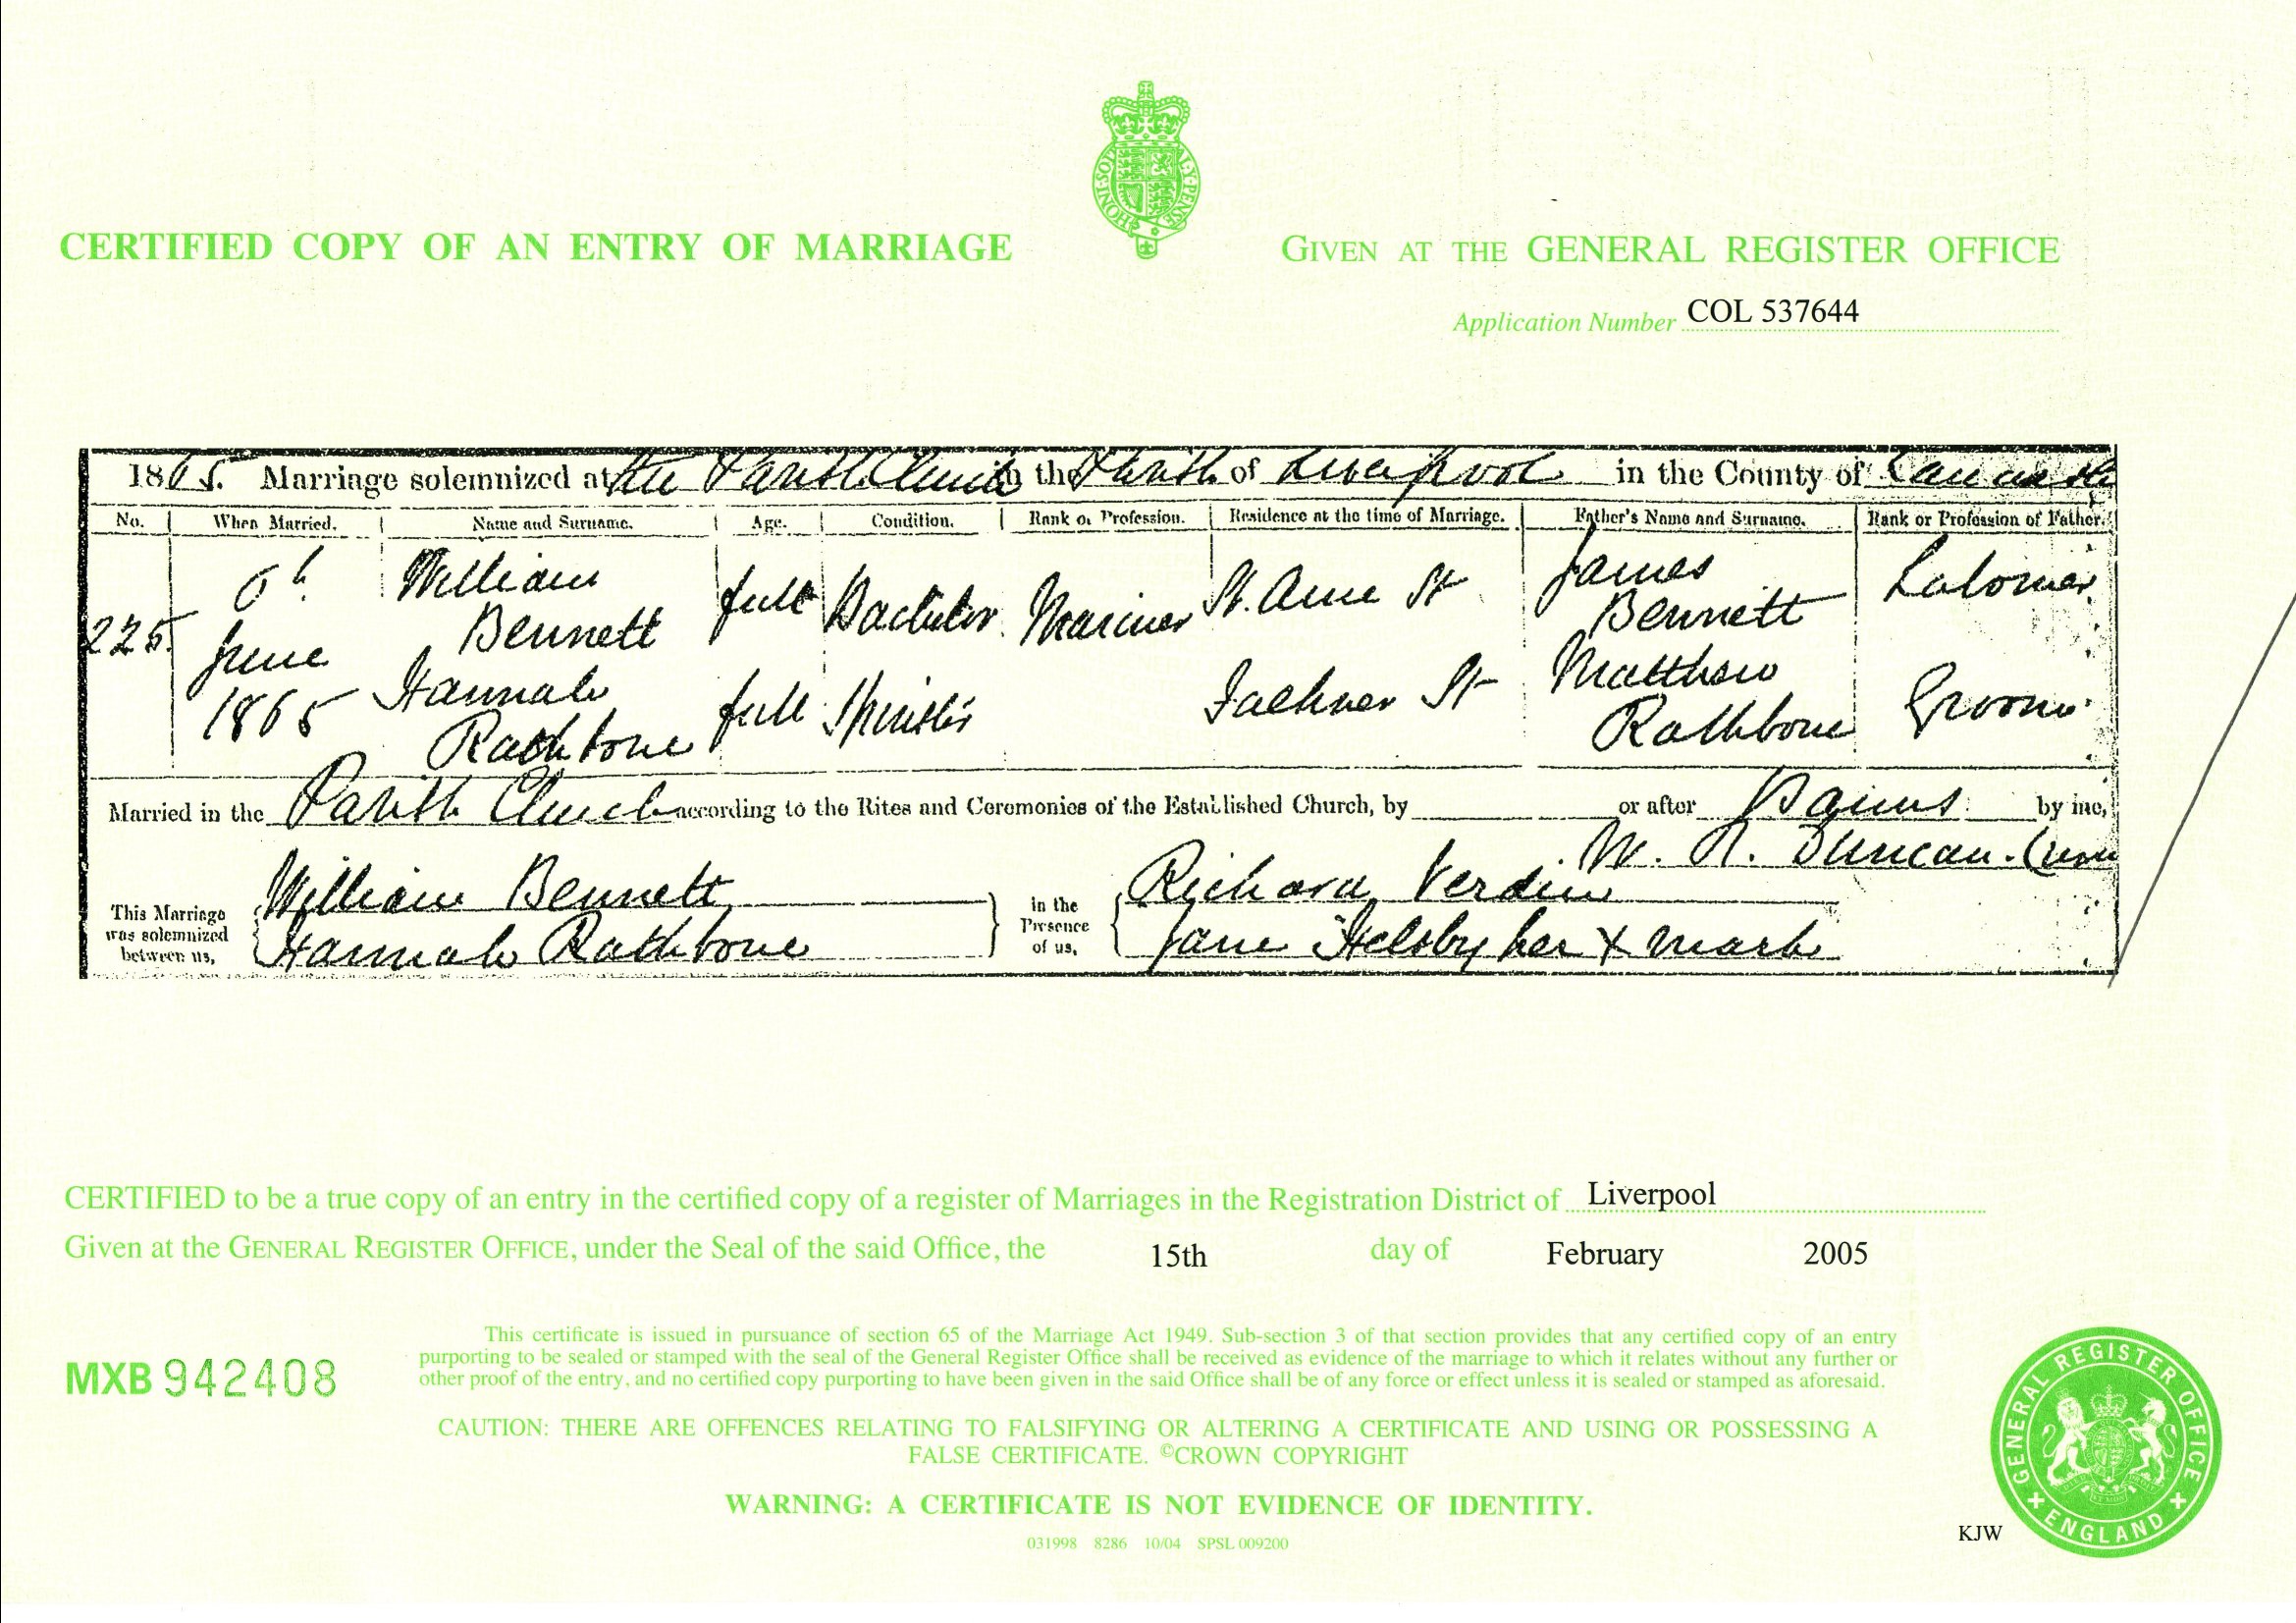 HONI·SOIT
AL·Y·PENSE
CERTIFIED COPY OF AN ENTRY OF MARRIAGE
GIVEN AT THE GENERAL REGISTER OFFICE
Application Number COL 537644
1865. Marriage solemnized at the Parish Church in the Parish of Liverpool in the County of Lancaster
No. When Married. Name and Surname. Age. Condition. Rank or Profession. Residence at the time of Marriage. Father's Name and Surname. Rank or Profession of Father.
225. June 1865 William Bennett full Bachelor Mariner St. Anne St James Bennett Labourer
Hannah Rathbone full Spinster Falkner St Matthew Rathbone Groom
Married in the Parish Church according to the Rites and Ceremonies of the Established Church, by or after Banns by me,
Duncan. Curate
This Marriage was solemnized between us, William Bennett Hannah Rathbone in the Presence of us, Richard Verdin Jane Helsby her X mark
CERTIFIED to be a true copy of an entry in the certified copy of a register of Marriages in the Registration District of Liverpool
Given at the GENERAL REGISTER OFFICE, under the Seal of the said Office, the 15th day of February 2005
This certificate is issued in pursuance of section 65 of the Marriage Act 1949. Sub-section 3 of that section provides that any certified copy of an entry
purporting to be sealed or stamped with the seal of the General Register Office shall be received as evidence of the marriage to which it relates without any further or
other proof of the entry, and no certified copy purporting to have been given in the said Office shall be of any force or effect unless it is sealed or stamped as aforesaid.
MXB 942408
CAUTION: THERE ARE OFFENCES RELATING TO FALSIFYING OR ALTERING A CERTIFICATE AND USING OR POSSESSING A
FALSE CERTIFICATE. ©CROWN COPYRIGHT
WARNING: A CERTIFICATE IS NOT EVIDENCE OF IDENTITY.
031998 8286 10/04 SPSL 009200
KJW
GENERAL REGISTER OFFICE
ENGLAND